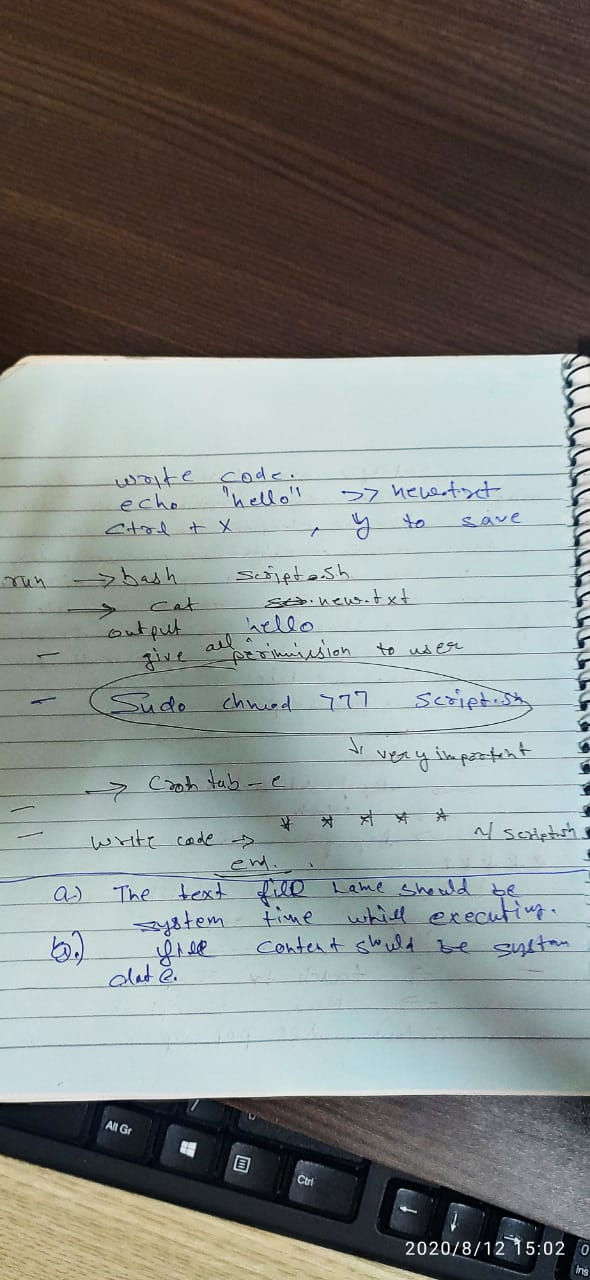 write code.
echo "hello" >> new.txt
Ctrl + X , y to save
run → bash script.sh
→ cat new.txt
output hello
- give all permission to user
- Sudo chmod 777 script.sh
↓ very important
→ Cron tab - e
write code → * * * * * ~/ script.sh
end.
a) The text file name should be
system time while executing.
b.) file content should be system
date.
Alt Gr
Ctrl
0
Ins
2020/8/12 15:02